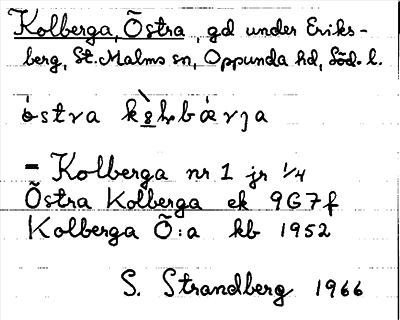 Kolberga, Östra, gd under Eriks-
berg, St. Malms sn, Oppunda hd, Söd. l.
östra
= Kolberga nr 1 jr 1/4
Östra Kolberga ek 9G7f
Kolberga Ö:a kb 1952
S. Strandberg 1966